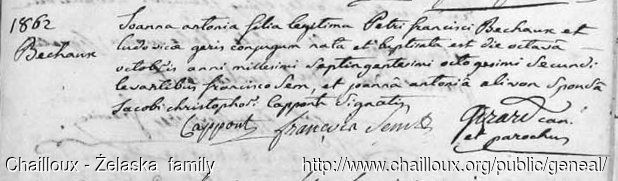 1862
Bechaux
Joanna antonia filia legitima Petri francisci Bechaux et
ludovica geris conjugum nata et baptisata est die octava
octobris anni millesimi septingentesimi octogesimi secundi
levantibus francisco Sem, et joanna antonia alison sponsa
Jacobi christophori Cappont Signatis
Cappont françois Sem Girard can.
et parochus
Chailloux - Želaska family http://www.chailloux.org/public/geneal/